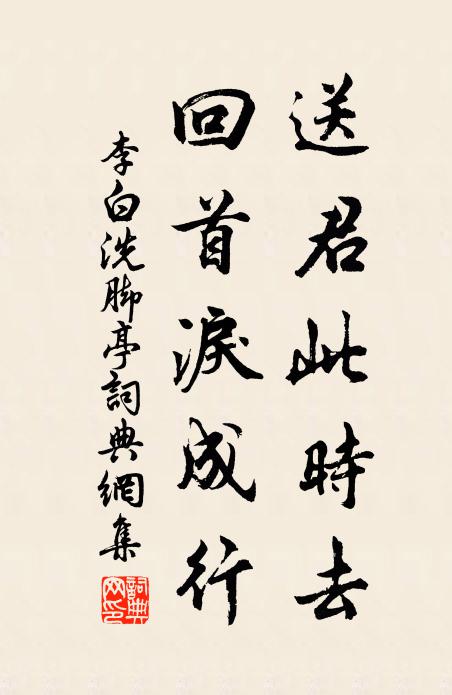 送君此時去
回首淚成行
李白洗脚亭詞典網集
詞典網印